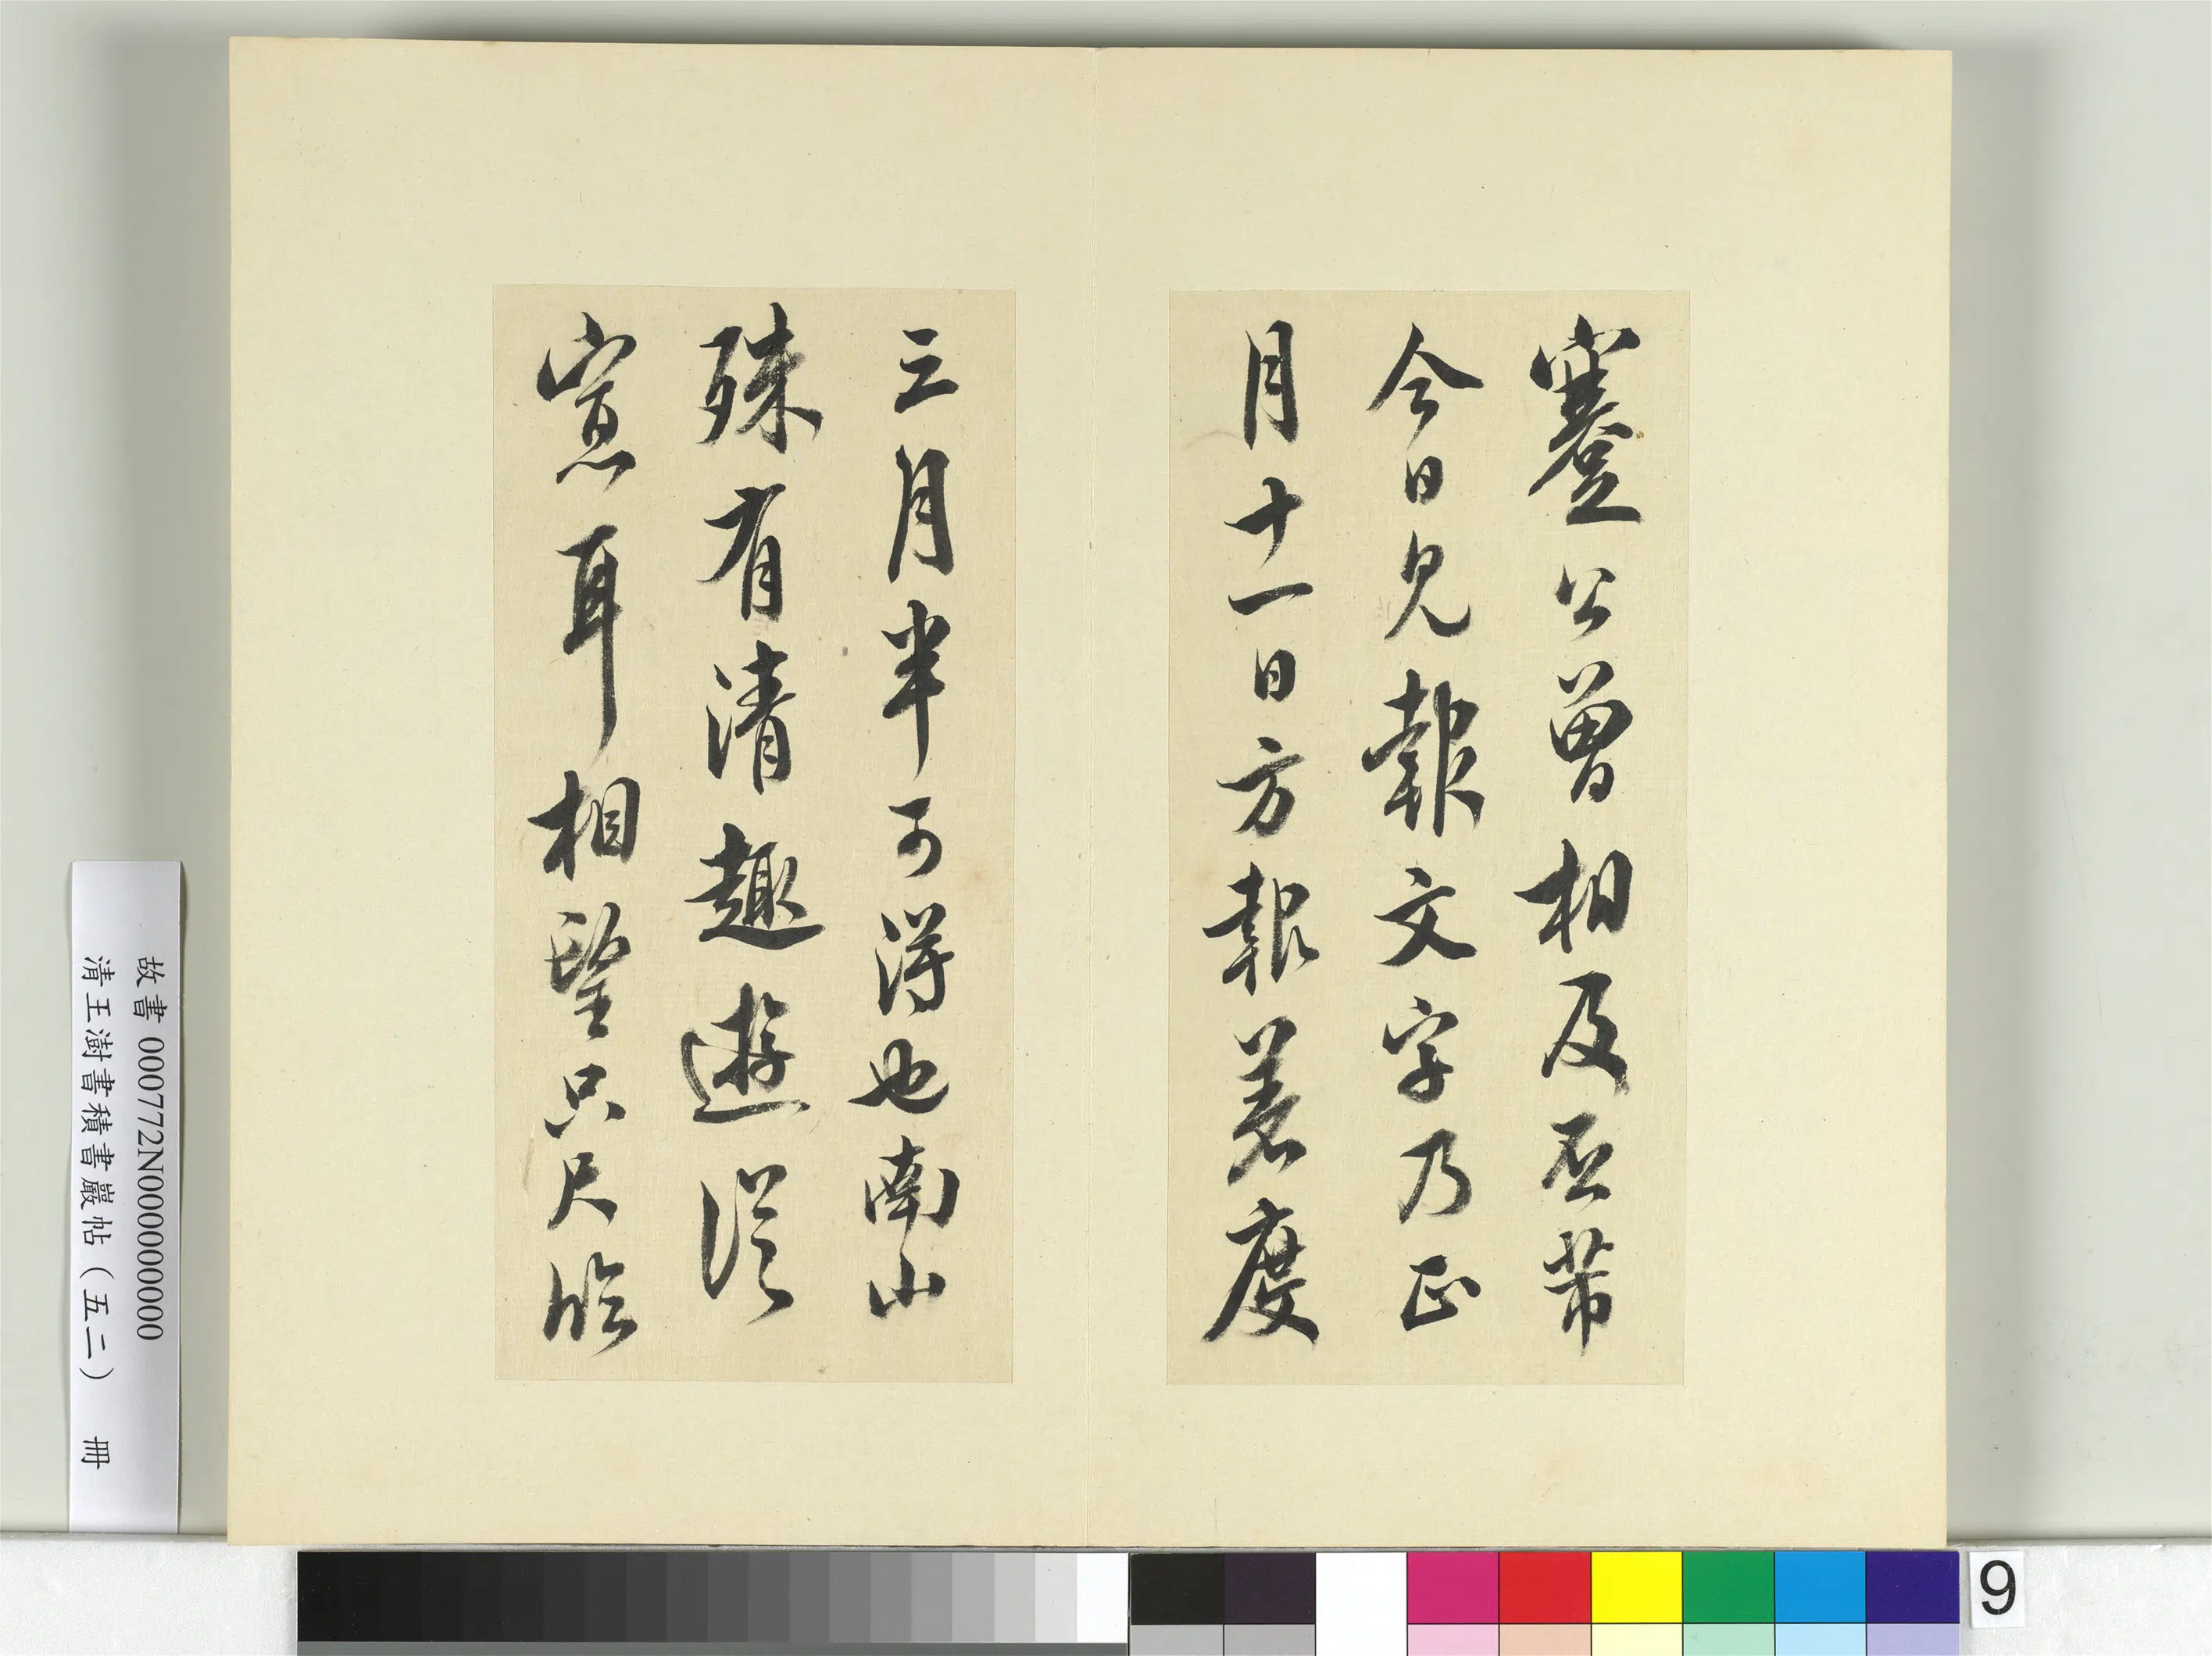 蹇公曾相及否芾
今日見報文字乃正
月十一日方報差度
三月半可得也南山
殊有清趣遊從
寡耳相望只尺臨
故書 000772N000000000
清王澍書積書巖帖(五二) 冊
9